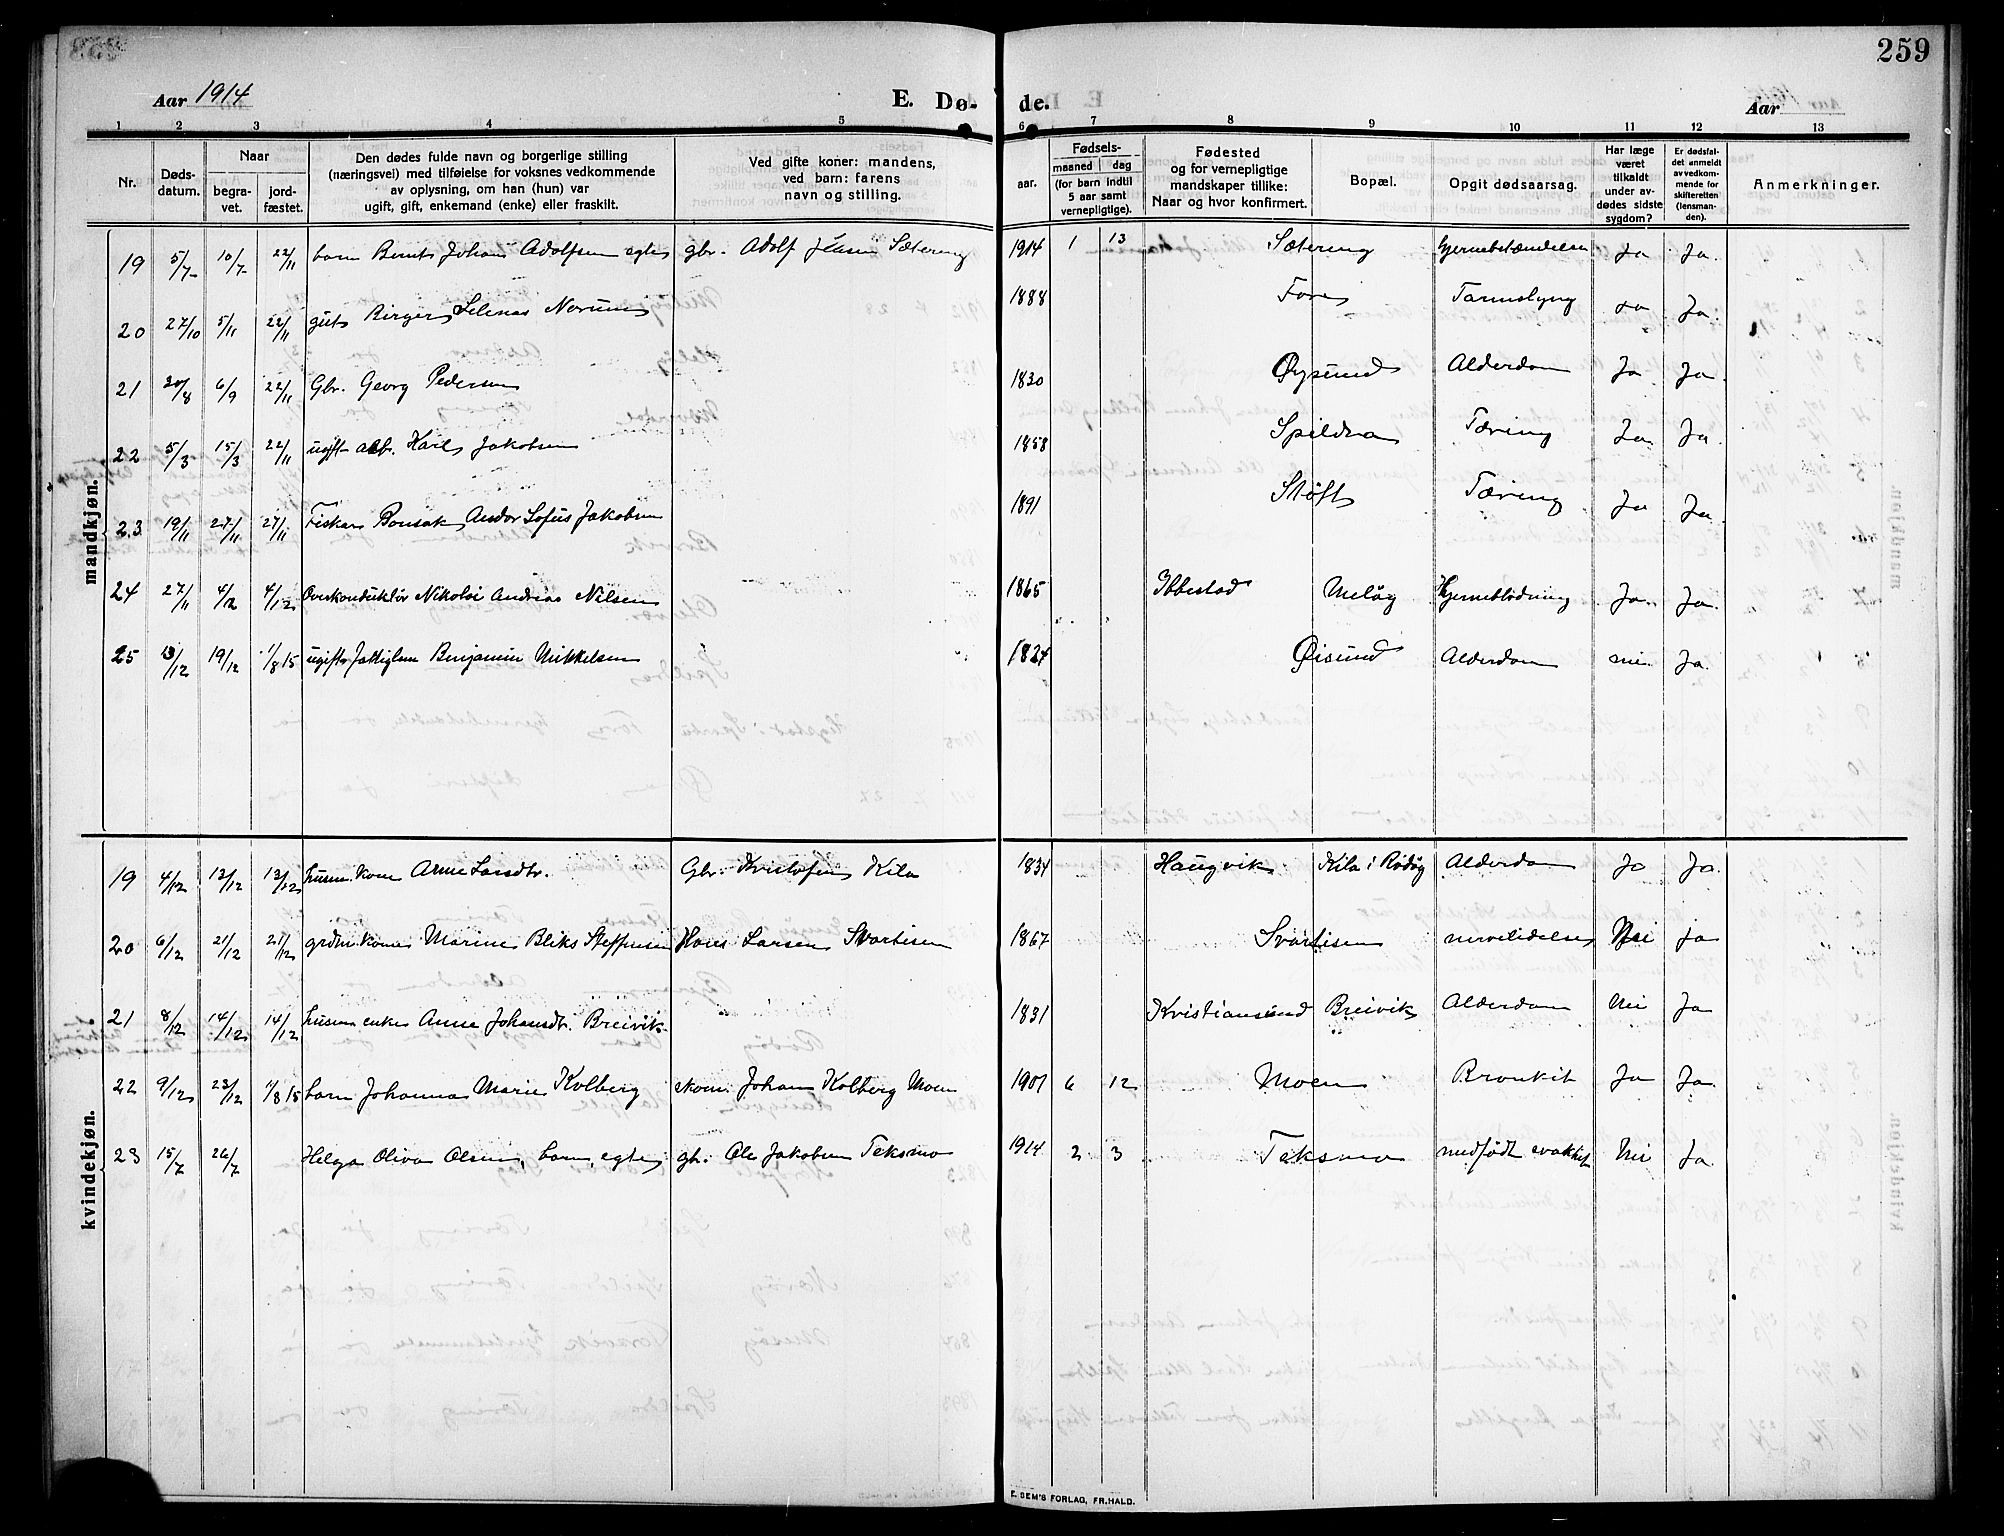 259
Aar 1914
E. Dø- de.
Aar
1 2 3 4 5 6 7 8 9 10 11 12 13
Nr.
Døds-
datum.
Naar
begra-
vet.
jord-
fæstet.
Den dødes fulde navn og borgerlige stilling
(næringsvei) med tilføielse for voksnes vedkommende
av oplysning, om han (hun) var
ugift, gift, enkemand (enke) eller fraskilt.
Ved gifte koner: mandens,
ved barn: farens
navn og stilling.
Fødsels-
aar.
maaned dag
(for barn indtil
5 aar samt
vernepligtige).
Fødested
og for vernepligtige
mandskaper tillike:
Naar og hvor konfirmert.
Bopæl.
Opgit dødsaarsag.
Har læge
været
tilkaldt
under av-
dødes sidste
sygdom?
Er dødsfal-
det anmeldt
av vedkom-
mende for
skifteretten
(lensman-
den).
Anmerkninger.
mandkjøn.
19 5/7 10/7 22/11 barn Bernt Johan Adolfsen egte gbr. Adolf Jensen Sætering 1914 1 13 Sætering Hjernebetændelse Ja Ja.
20 27/10 5/11 22/11 gut Birger Selenas Norum 1888 Fore Tarmslyng Ja Ja.
21 20/8 6/9 22/11 Gbr. Georg Pedersen 1830 Øysund Alderdom Ja Ja.
22 5/3 15/3 22/11 ugift arb. Karl Jakobsen 1858 Spildra Tæring Ja. Ja
23 19/11 27/11 27/11 Fisker Bonsak Andor Sofus Jakobsen 1891 Støtt Tæring Ja Ja.
24 27/11 4/12 4/12 Overkonduktør Nikolai Andreas Nilsen 1865 Ibbestad Meløy Hjerneblødning Ja. Ja.
25 13/12 19/12 1/8 15 ugift Benjamin Mikkelsen 1834 Øisund Alderdom nei Ja.
kvindekjøn.
19 4/12 13/12 13/12 husm. kone Anne Larsdtr. Gbr. Kristofer Kila 1834 Haugvik Kila i Rødøy Alderdom Ja Ja.
20 6/12 21/12 21/12 grdm kone Marine Bliks Steffensen Hans Larsen Svartisen 1867 Svartisen nervelidelse Nei ja
21 8/12 14/12 14/12 husm enke Anne Johansdtr. Breivik 1831 Kristiansund Breivik Alderdom Nei Ja
22 9/12 23/12 1/8 15 barn Johanna Marie Kolberg skom. Johan Kolberg Moen 1907 6 12 Moen Bronkit Ja Ja.
23 15/7 26/7 Helga Oliva Olsen, barn, egte gb. Ole Jakobsen Teksmo 1914 2 3 Teksmo medfødt svakhet Nei Ja
E. SEM'S FORLAG, FR.HALD.